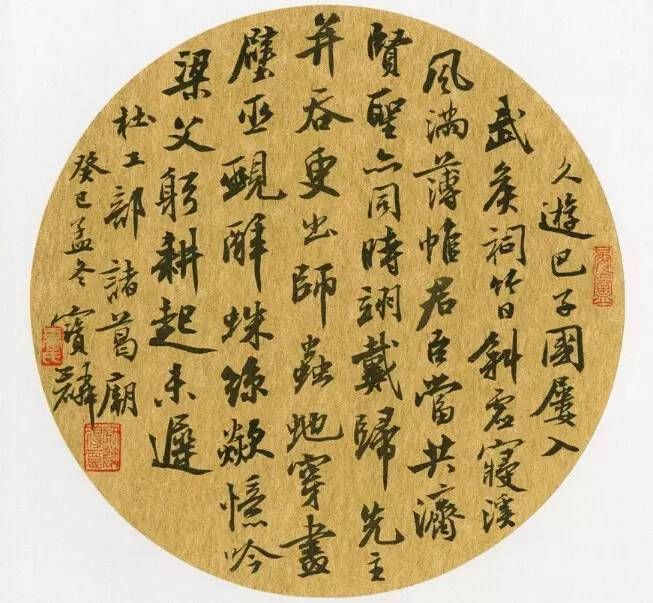 久遊巴子國屢入
武侯祠竹日斜虛寢溪
風滿薄帷君臣當共濟
賢聖亦同時翊戴歸先主
并吞更出師蟲虵穿畫
壁巫覡醉蛛絲欻憶吟
梁父躬耕起未遲
杜工部諸葛廟
癸巳孟冬寶麟